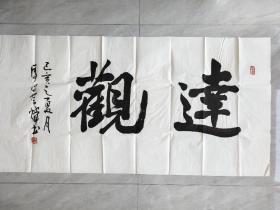 達觀
己亥之夏月
書